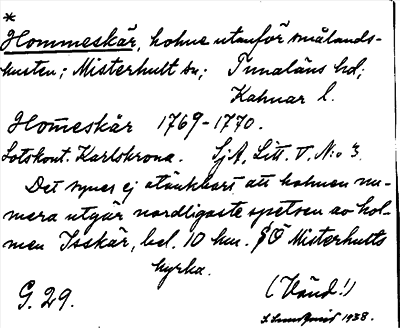 *
Hommeskär, holme utanför smålands-
kusten; Misterhult sn; Tunaläns hd;
Kalmar l.
Hom̅eskär 1769-1770.
Lotskont. Karlskrona. SjA, Litt. V, N:o 3.
Det synes ej otänkbart att holmen nu-
mera utgör nordligaste spetsen av hol-
men Isskär, bel. 10 km. SÖ Misterhults
kyrka.
G. 29. (Vänd!)
1938.